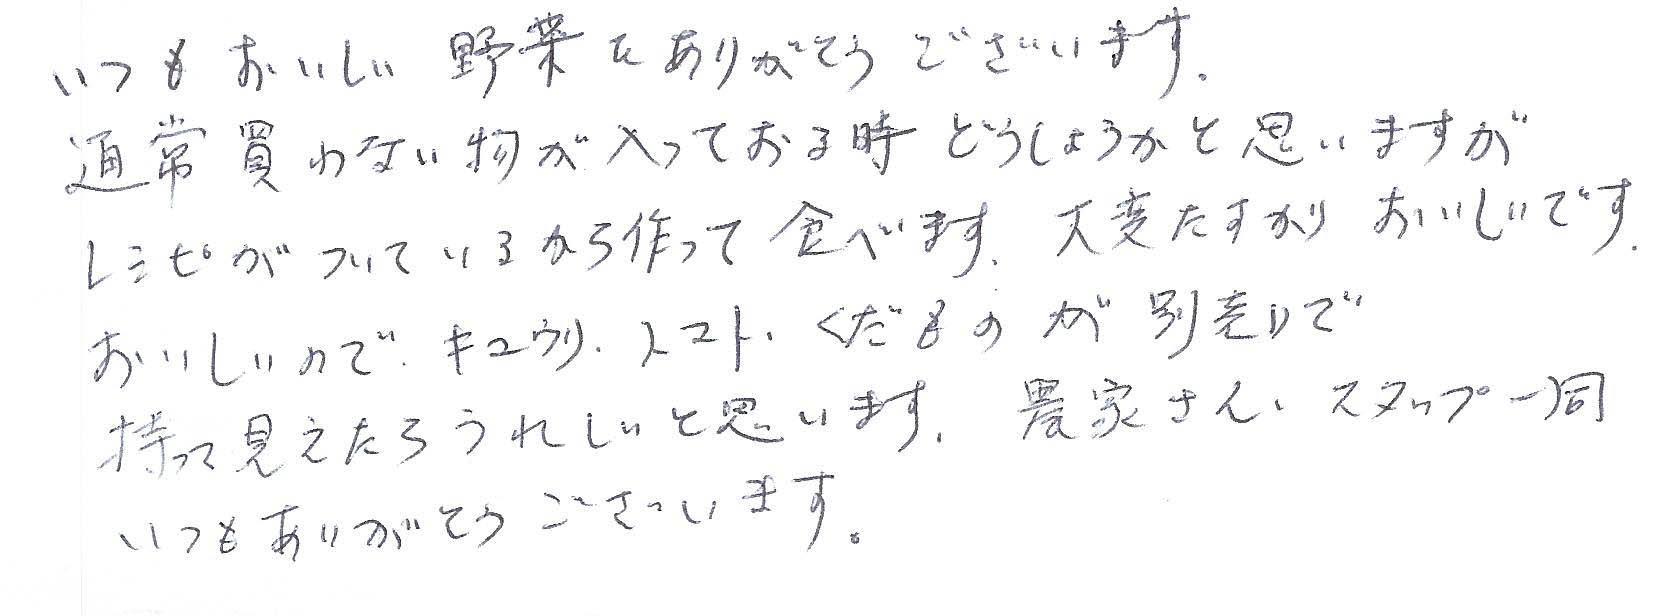 いつもおいしい野菜をありがとうございます。
通常買わない物が入っておる時どうしようかと思いますが
レシピがついているから作って食べます。大変たすかりおいしいです。
おいしいので、キュウリ、トマト、くだものが別売りで
持って見えたらうれしいと思います。農家さん、スタッフ一同
いつもありがとうございます。